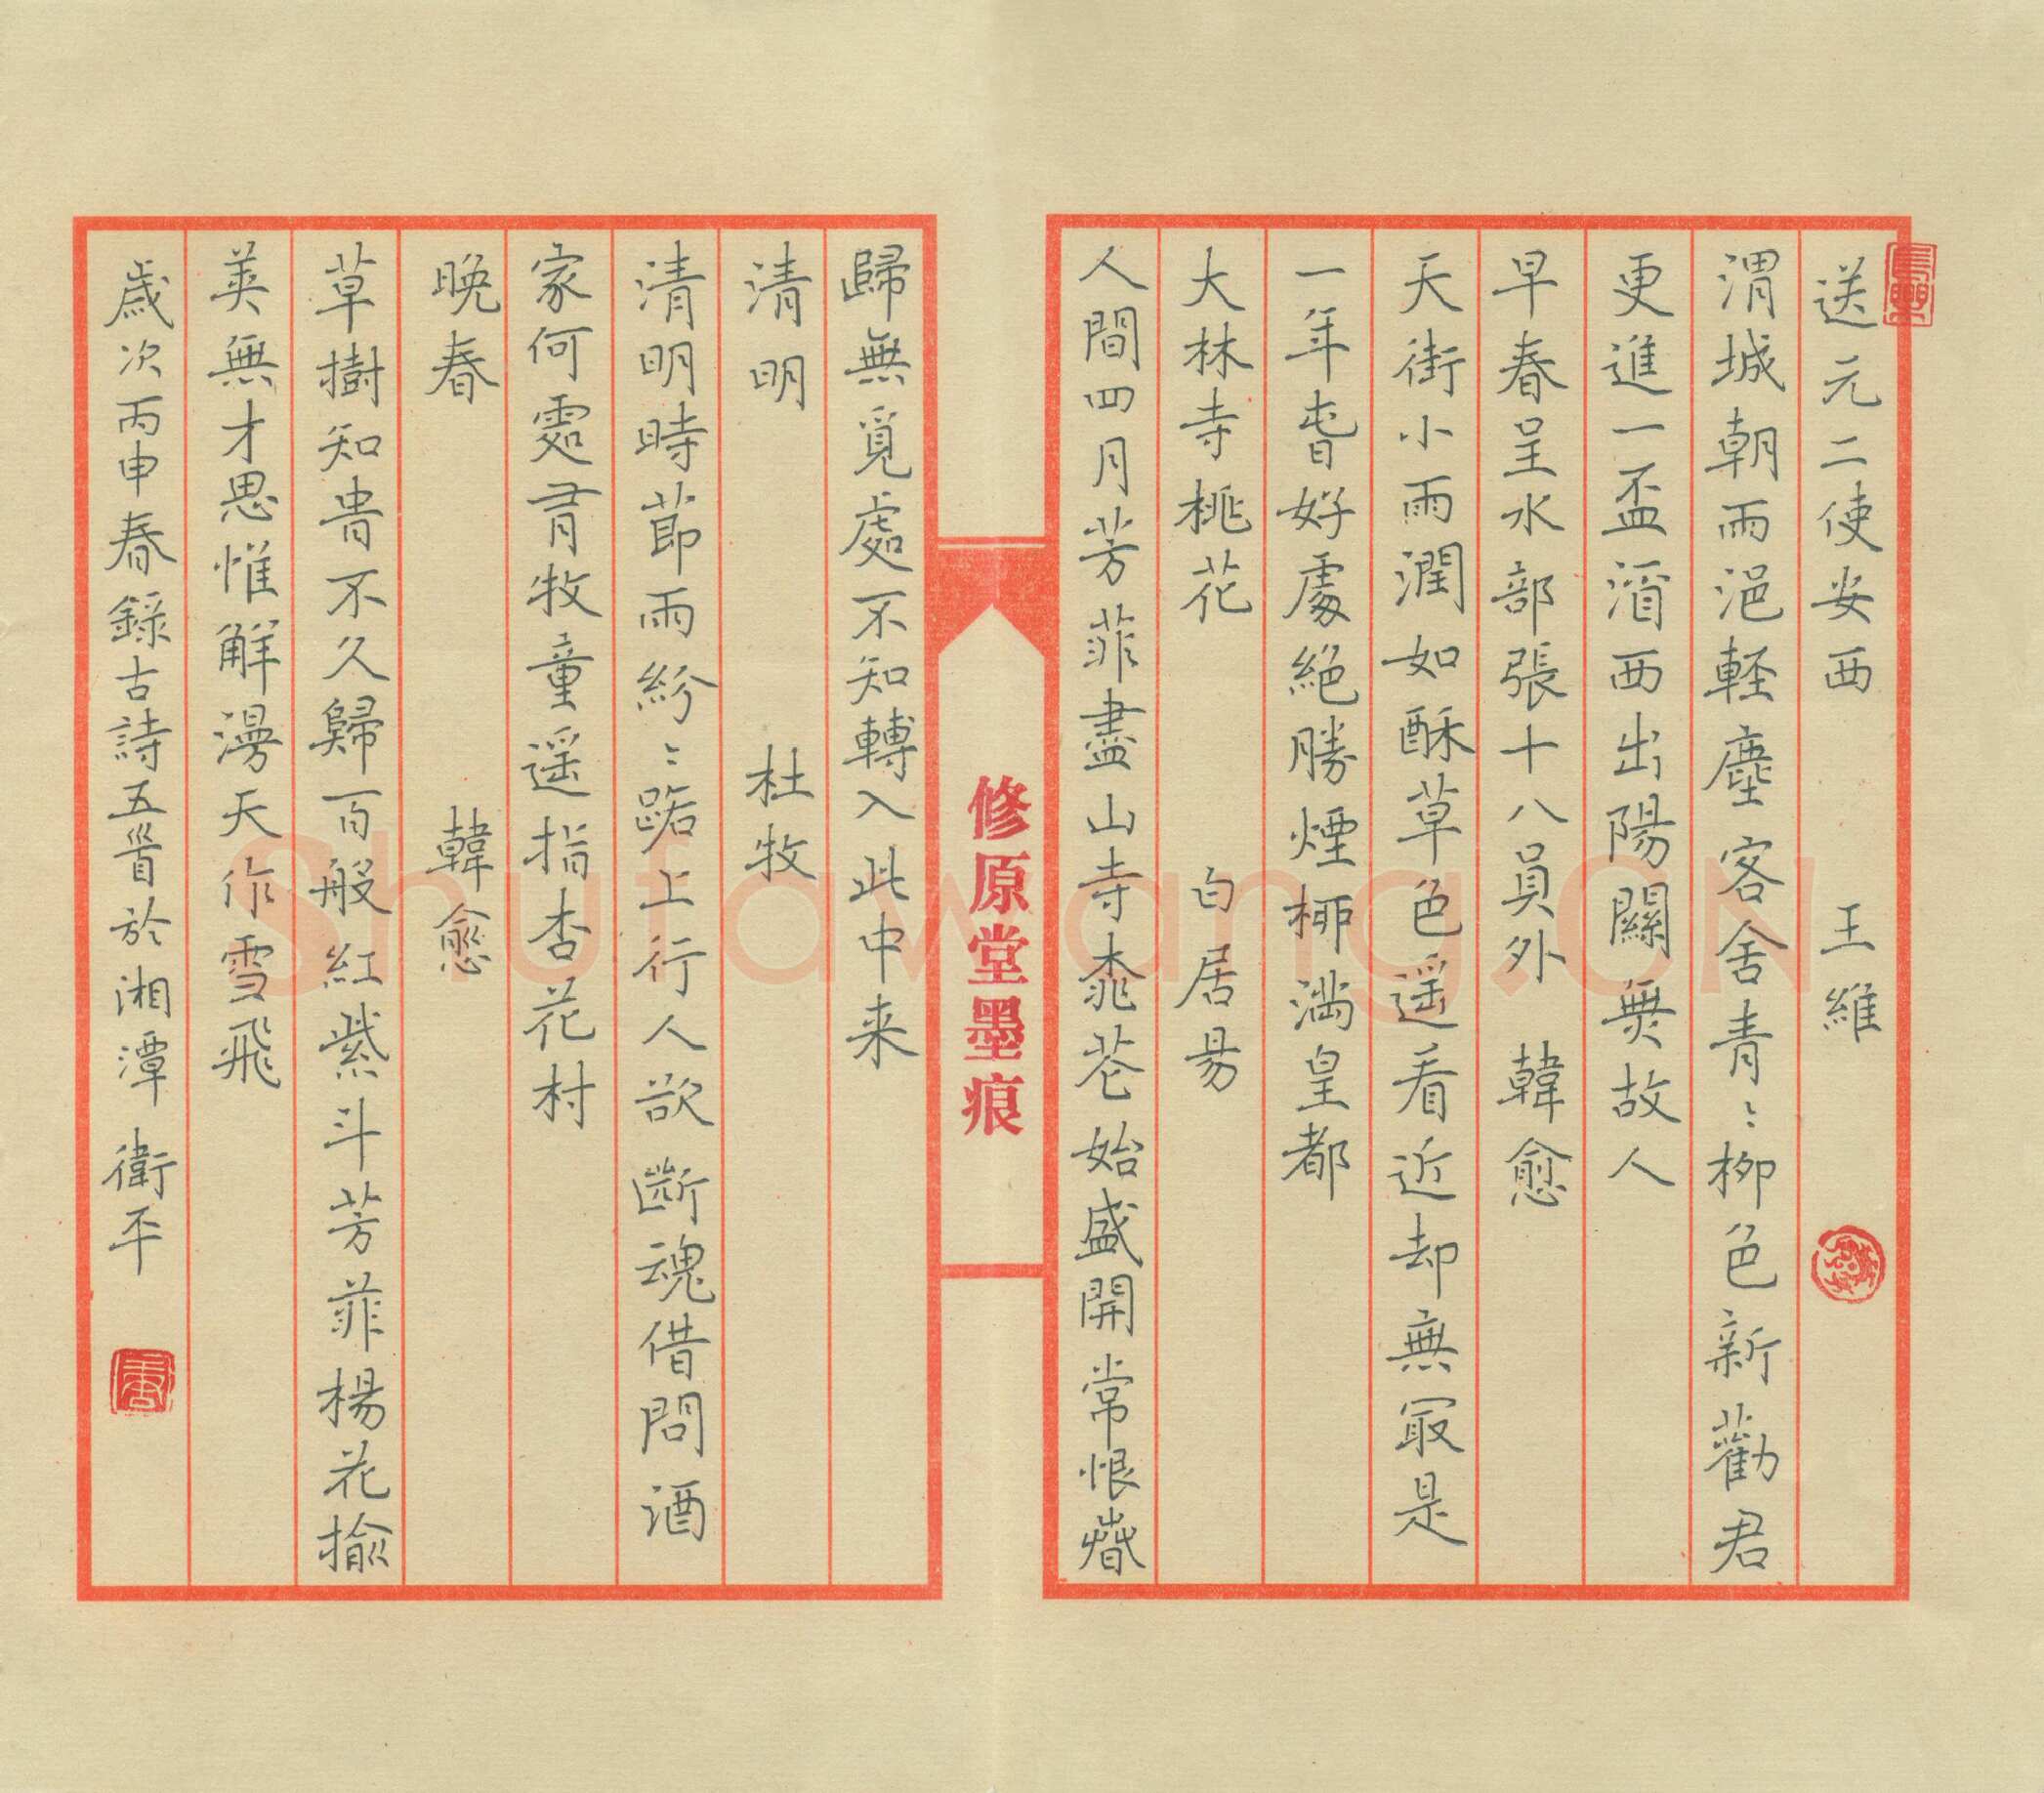 送元二使安西 王維
渭城朝雨浥輕塵客舍青〻柳色新勸君
更進一盃酒西出陽關無故人
早春呈水部張十八員外 韓愈
天街小雨潤如酥草色遥看近却無冣是
一年春好處絕勝煙柳滿皇都
大林寺桃花 白居易
人間四月芳菲盡山寺桃花始盛開常恨春
修原堂墨痕
歸無覓處不知轉入此中来
清明 杜牧
清明時節雨紛〻路上行人欲斷魂借問酒
家何處有牧童遥指杏花村
晚春 韓愈
草樹知春不久歸百般紅紫斗芳菲楊花揄
莢無才思惟解漫天作雪飛
歲次丙申春錄古詩五首於湘潭 衛平
Shufawang.CN